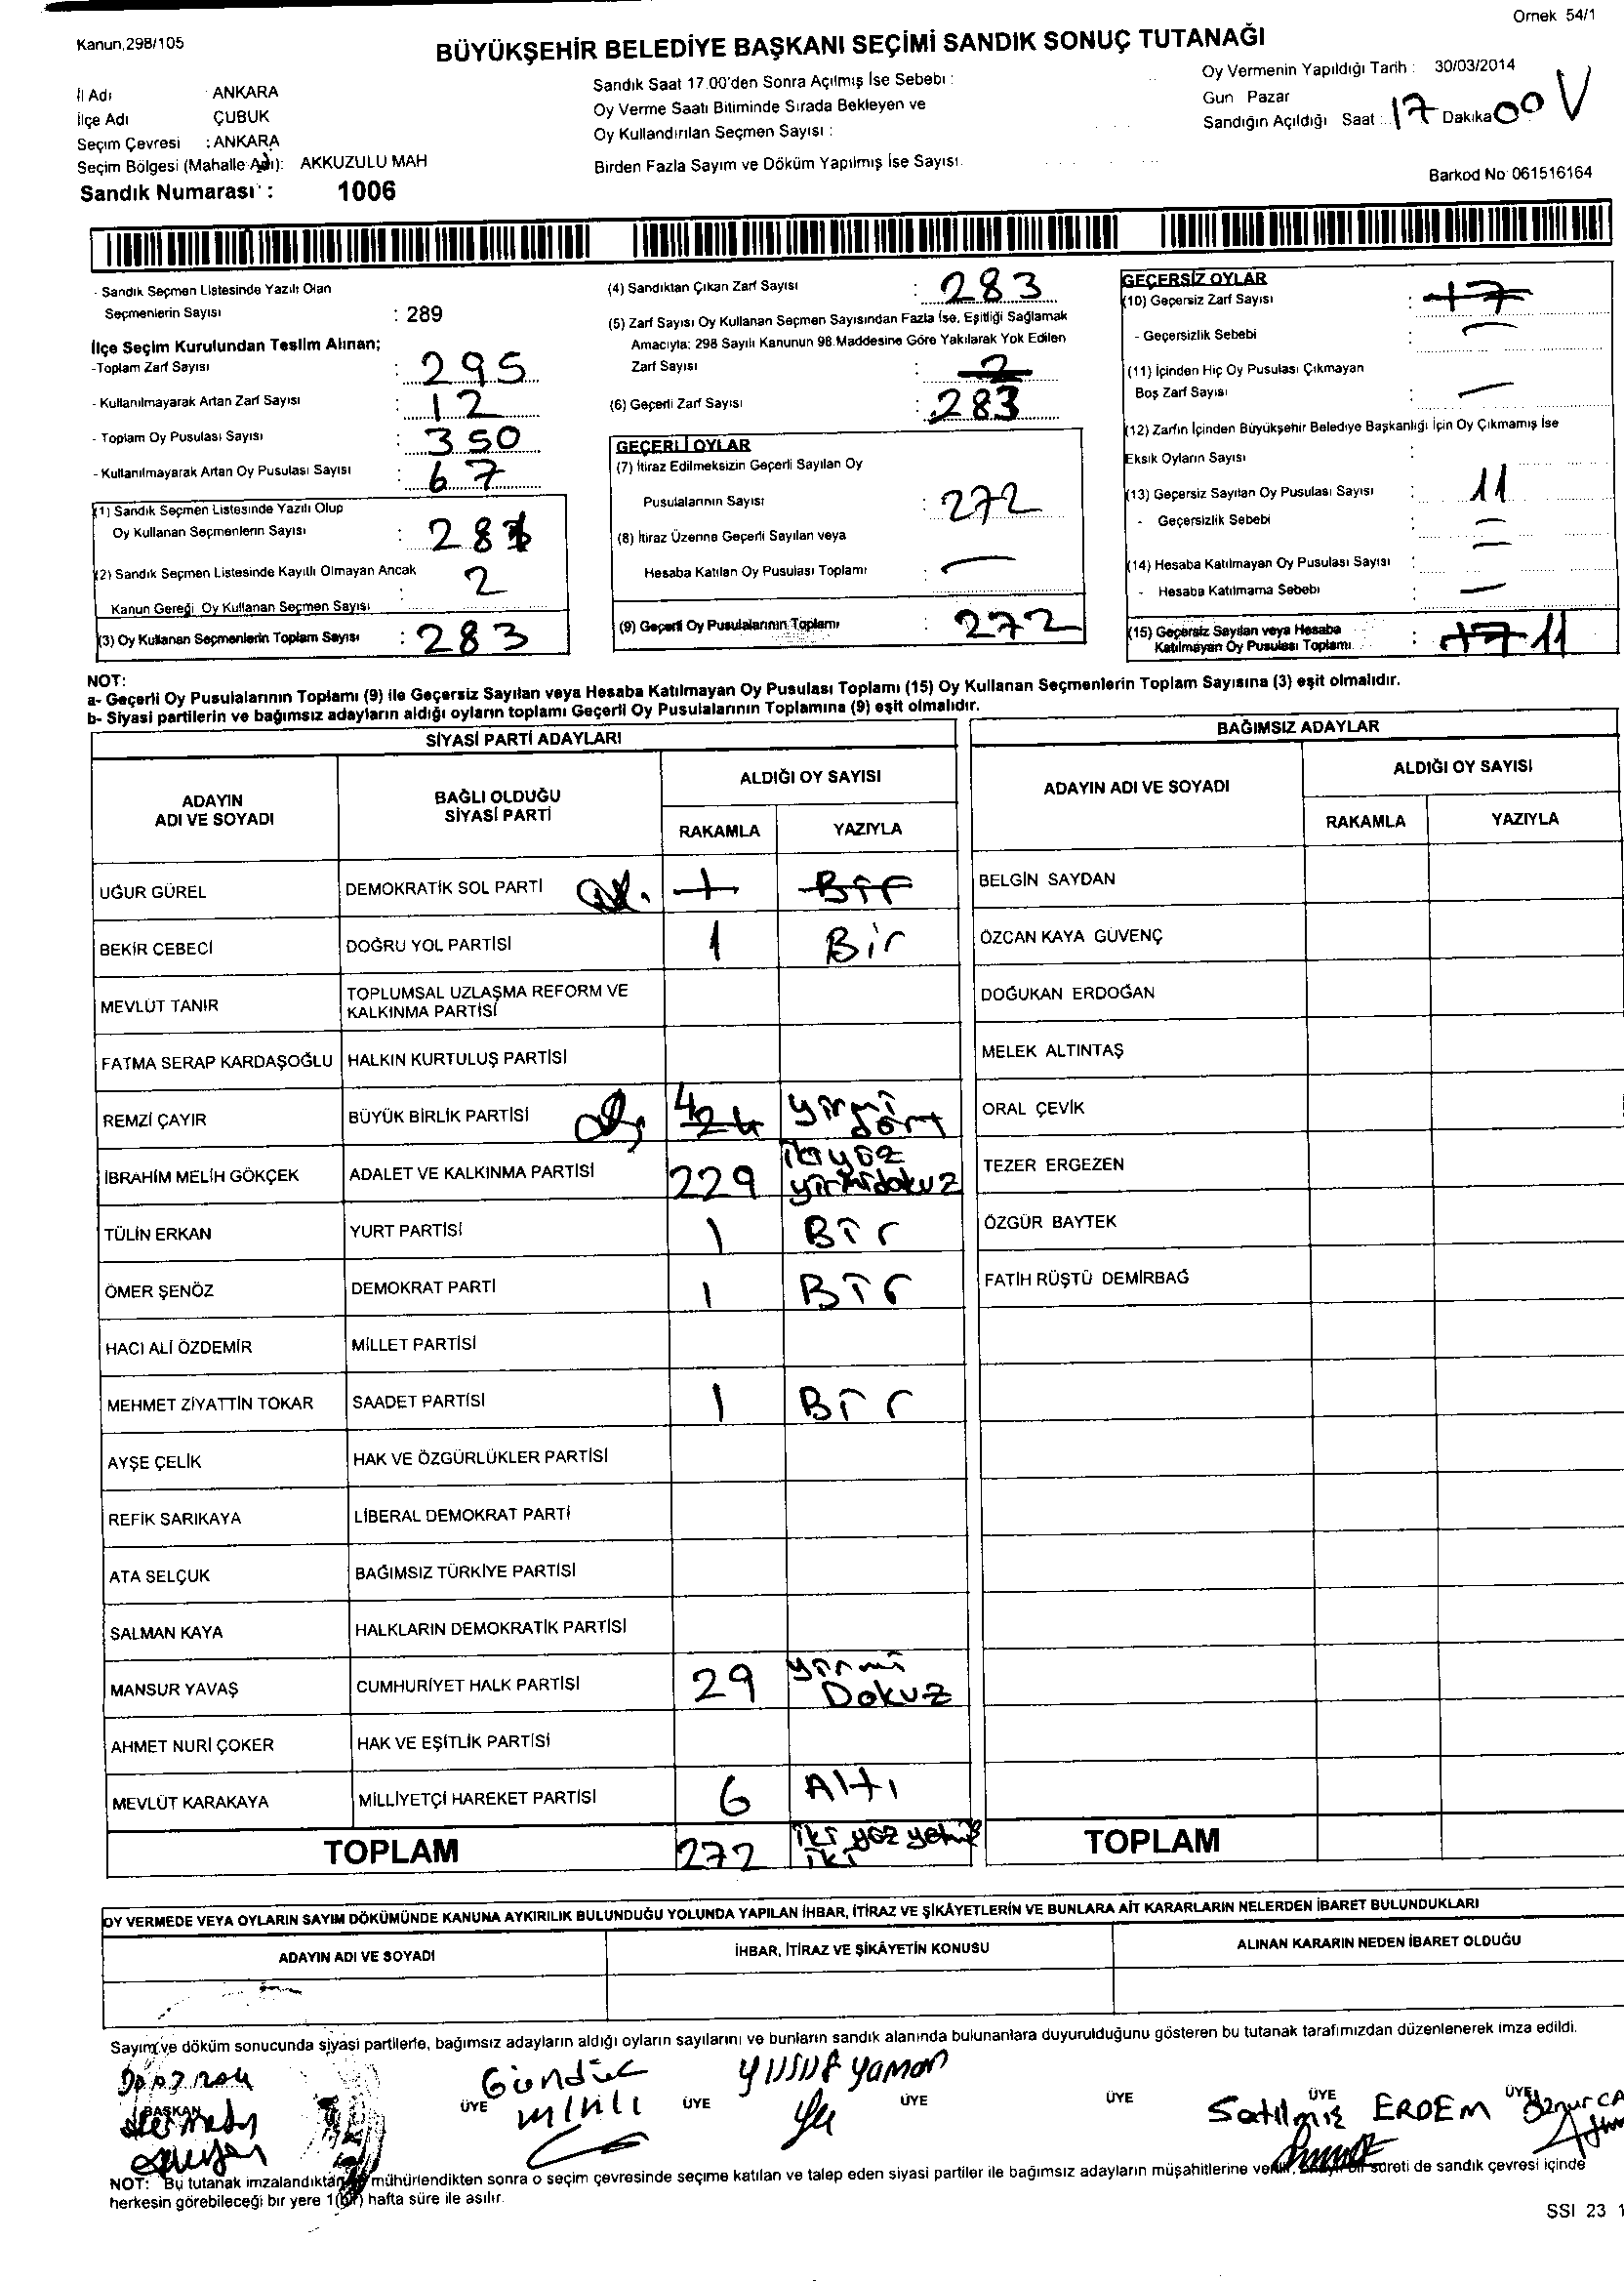 Örnek 54/1
Kanun,298/105
BÜYÜKŞEHİR BELEDİYE BAŞKANI SEÇİMİ SANDIK SONUÇ TUTANAĞI
İl Adı ANKARA
İlçe Adı ÇUBUK
Seçim Çevresi : ANKARA
Seçim Bölgesi (Mahalle Adı): AKKUZULU MAH
Sandık Numarası : 1006
Sandık Saat 17.00'den Sonra Açılmış İse Sebebi :
Oy Verme Saati Bitiminde Sırada Bekleyen ve
Oy Kullandırılan Seçmen Sayısı :
Birden Fazla Sayım ve Döküm Yapılmış İse Sayısı
Oy Vermenin Yapıldığı Tarih : 30/03/2014
Gun Pazar
Sandığın Açıldığı Saat : 17 Dakika 00
Barkod No 061516164
- Sandık Seçmen Listesinde Yazılı Olan
Seçmenlerin Sayısı : 289
İlçe Seçim Kurulundan Teslim Alınan;
-Toplam Zarf Sayısı : 295
- Kullanılmayarak Artan Zarf Sayısı : 12
- Toplam Oy Pusulası Sayısı : 350
- Kullanılmayarak Artan Oy Pusulası Sayısı : 67
(1) Sandık Seçmen Listesinde Yazılı Olup
Oy Kullanan Seçmenlerin Sayısı : 281
(2) Sandık Seçmen Listesinde Kayıtlı Olmayan Ancak
Kanun Gereği Oy Kullanan Seçmen Sayısı : 2
(3) Oy Kullanan Seçmenlerin Toplam Sayısı : 283
(4) Sandıktan Çıkan Zarf Sayısı : 283
(5) Zarf Sayısı Oy Kullanan Seçmen Sayısından Fazla İse, Eşitliği Sağlamak
Amacıyla; 298 Sayılı Kanunun 98.Maddesine Göre Yakılarak Yok Edilen
Zarf Sayısı : 2
(6) Geçerli Zarf Sayısı : 283
GEÇERLİ OYLAR
(7) İtiraz Edilmeksizin Geçerli Sayılan Oy
Pusulalarının Sayısı : 272
(8) İtiraz Üzerine Geçerli Sayılan veya
Hesaba Katılan Oy Pusulası Toplamı : —
(9) Geçerli Oy Pusulalarının Toplamı : 272
GEÇERSİZ OYLAR
(10) Geçersiz Zarf Sayısı : 17
- Geçersizlik Sebebi : —
(11) İçinden Hiç Oy Pusulası Çıkmayan
Boş Zarf Sayısı : —
(12) Zarfın İçinden Büyükşehir Belediye Başkanlığı İçin Oy Çıkmamış İse
Eksik Oyların Sayısı :
(13) Geçersiz Sayılan Oy Pusulası Sayısı : 11
- Geçersizlik Sebebi : —
(14) Hesaba Katılmayan Oy Pusulası Sayısı : —
- Hesaba Katılmama Sebebi : —
(15) Geçersiz Sayılan veya Hesaba
Katılmayan Oy Pusulası Toplamı : 17 11
NOT:
a- Geçerli Oy Pusulalarının Toplamı (9) ile Geçersiz Sayılan veya Hesaba Katılmayan Oy Pusulası Toplamı (15) Oy Kullanan Seçmenlerin Toplam Sayısına (3) eşit olmalıdır.
b- Siyasi partilerin ve bağımsız adayların aldığı oyların toplamı Geçerli Oy Pusulalarının Toplamına (9) eşit olmalıdır.
SİYASİ PARTİ ADAYLARI
ADAYIN ADI VE SOYADI
BAĞLI OLDUĞU SİYASİ PARTİ
ALDIĞI OY SAYISI
RAKAMLA YAZIYLA
UĞUR GÜREL DEMOKRATİK SOL PARTİ 1 Bir
BEKİR CEBECİ DOĞRU YOL PARTİSİ 1 Bir
MEVLÜT TANIR TOPLUMSAL UZLAŞMA REFORM VE
KALKINMA PARTİSİ
FATMA SERAP KARDAŞOĞLU HALKIN KURTULUŞ PARTİSİ
REMZİ ÇAYIR BÜYÜK BİRLİK PARTİSİ 4 24 yirmi dört
İBRAHİM MELİH GÖKÇEK ADALET VE KALKINMA PARTİSİ 229 ikiyüz yirmidokuz
TÜLİN ERKAN YURT PARTİSİ 1 Bir
ÖMER ŞENÖZ DEMOKRAT PARTİ 1 Bir
HACI ALİ ÖZDEMİR MİLLET PARTİSİ
MEHMET ZİYATTİN TOKAR SAADET PARTİSİ 1 Bir
AYŞE ÇELİK HAK VE ÖZGÜRLÜKLER PARTİSİ
REFİK SARIKAYA LİBERAL DEMOKRAT PARTİ
ATA SELÇUK BAĞIMSIZ TÜRKİYE PARTİSİ
SALMAN KAYA HALKLARIN DEMOKRATİK PARTİSİ
MANSUR YAVAŞ CUMHURİYET HALK PARTİSİ 29 yirmi Dokuz
AHMET NURİ ÇOKER HAK VE EŞİTLİK PARTİSİ
MEVLÜT KARAKAYA MİLLİYETÇİ HAREKET PARTİSİ 6 Altı
TOPLAM 272 iki yüz yetmiş iki
BAĞIMSIZ ADAYLAR
ADAYIN ADI VE SOYADI
ALDIĞI OY SAYISI
RAKAMLA YAZIYLA
BELGİN SAYDAN
ÖZCAN KAYA GÜVENÇ
DOĞUKAN ERDOĞAN
MELEK ALTINTAŞ
ORAL ÇEVİK
TEZER ERGEZEN
ÖZGÜR BAYTEK
FATİH RÜŞTÜ DEMİRBAĞ
TOPLAM
OY VERMEDE VEYA OYLARIN SAYIM DÖKÜMÜNDE KANUNA AYKIRILIK BULUNDUĞU YOLUNDA YAPILAN İHBAR, İTİRAZ VE ŞİKÂYETLERİN VE BUNLARA AİT KARARLARIN NELERDEN İBARET BULUNDUKLARI
ADAYIN ADI VE SOYADI
İHBAR, İTİRAZ VE ŞİKÂYETİN KONUSU
ALINAN KARARIN NEDEN İBARET OLDUĞU
Sayım ve döküm sonucunda siyasi partilerle, bağımsız adayların aldığı oyların sayılarını ve bunların sandık alanında bulunanlara duyurulduğunu gösteren bu tutanak tarafımızdan düzenlenerek imza edildi.
BAŞKAN
ÜYE Gündüz
ÜYE Yusuf Yaman
ÜYE
ÜYE
ÜYE Satılmış ERDEM
ÜYE
NOT: Bu tutanak imzalandıktan mühürlendikten sonra o seçim çevresinde seçime katılan ve talep eden siyasi partiler ile bağımsız adayların müşahitlerine sureti de sandık çevresi içinde
herkesin görebileceği bir yere 1(bir) hafta süre ile asılır.
SSI 23 1